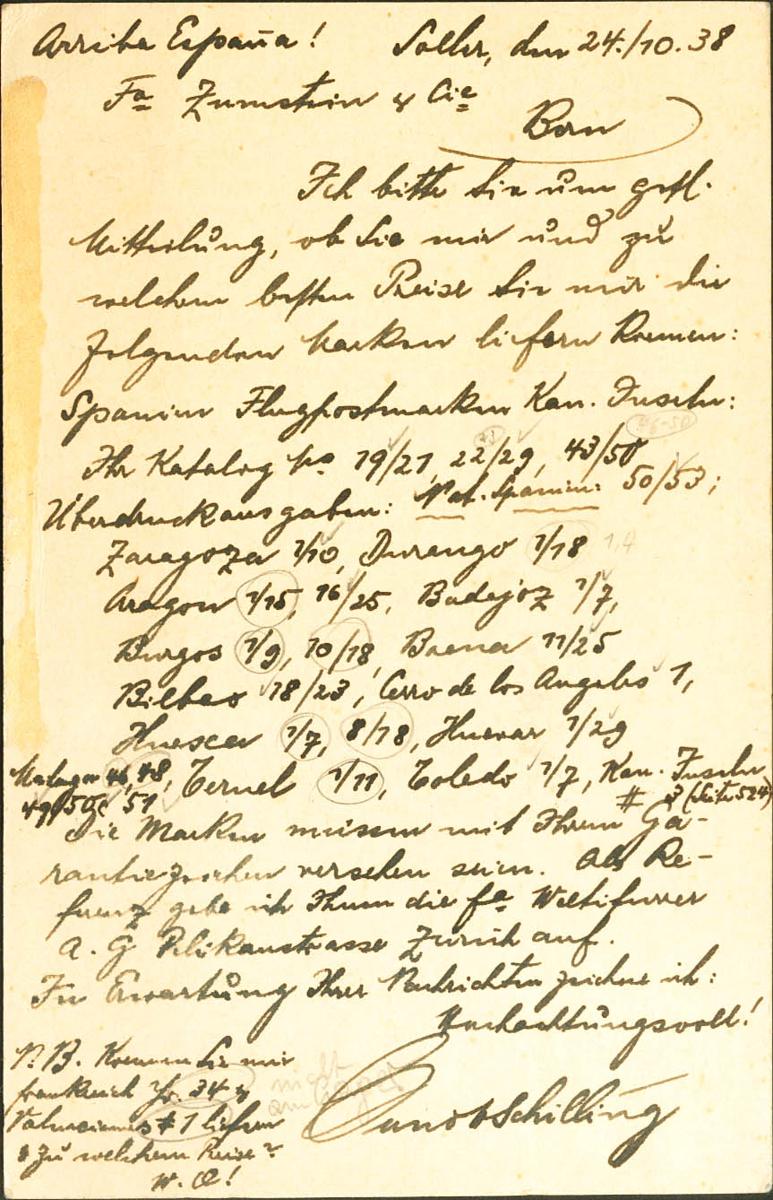 Arriba España! Soller, den 24./10.38
Fa Zumstein & Cie
Bern
Ich bitte Sie um gefl.
Mitteilung, ob Sie mir und zu
welchem besten Preise Sie mir die
folgenden Marken liefern können:
Spanien Flugpostmarken Kan. Inseln:
Ihr Katalog No 19/21, 22/29, 43/50
Überdruckausgaben: Nat. Spanien: 50/53;
Zaragoza 1/10, Durango 1/18
Aragon 1/15, 16/25, Badajoz 1/7,
Burgos 1/9, 10/18, Baena 11/25
Bilbao 18/23, Cerro de los Angeles 1,
Huesca 1/7, 8/18, Huevar 1/29
Malaga 46, 48, Teruel 1/11, Toledo 1/7, Kan. Inseln
49/50, 51 # 3 (Seite 524)
Die Marken müssen mit Ihrem Ga-
rantiezeichen versehen sein. Als Re-
ferenz gebe ich Ihnen die fa Weltifurrer
A. G Pelikanstrasse Zürich auf.
In Erwartung Ihrer Nachrichten zeichne ich:
Hochachtungsvoll!
N. B. Koennen Sie mir
frankreich 34 &
Valenciennes # 1 liefern
& zu welchem Preise?
W. O!
nicht
am Lager
Schilling